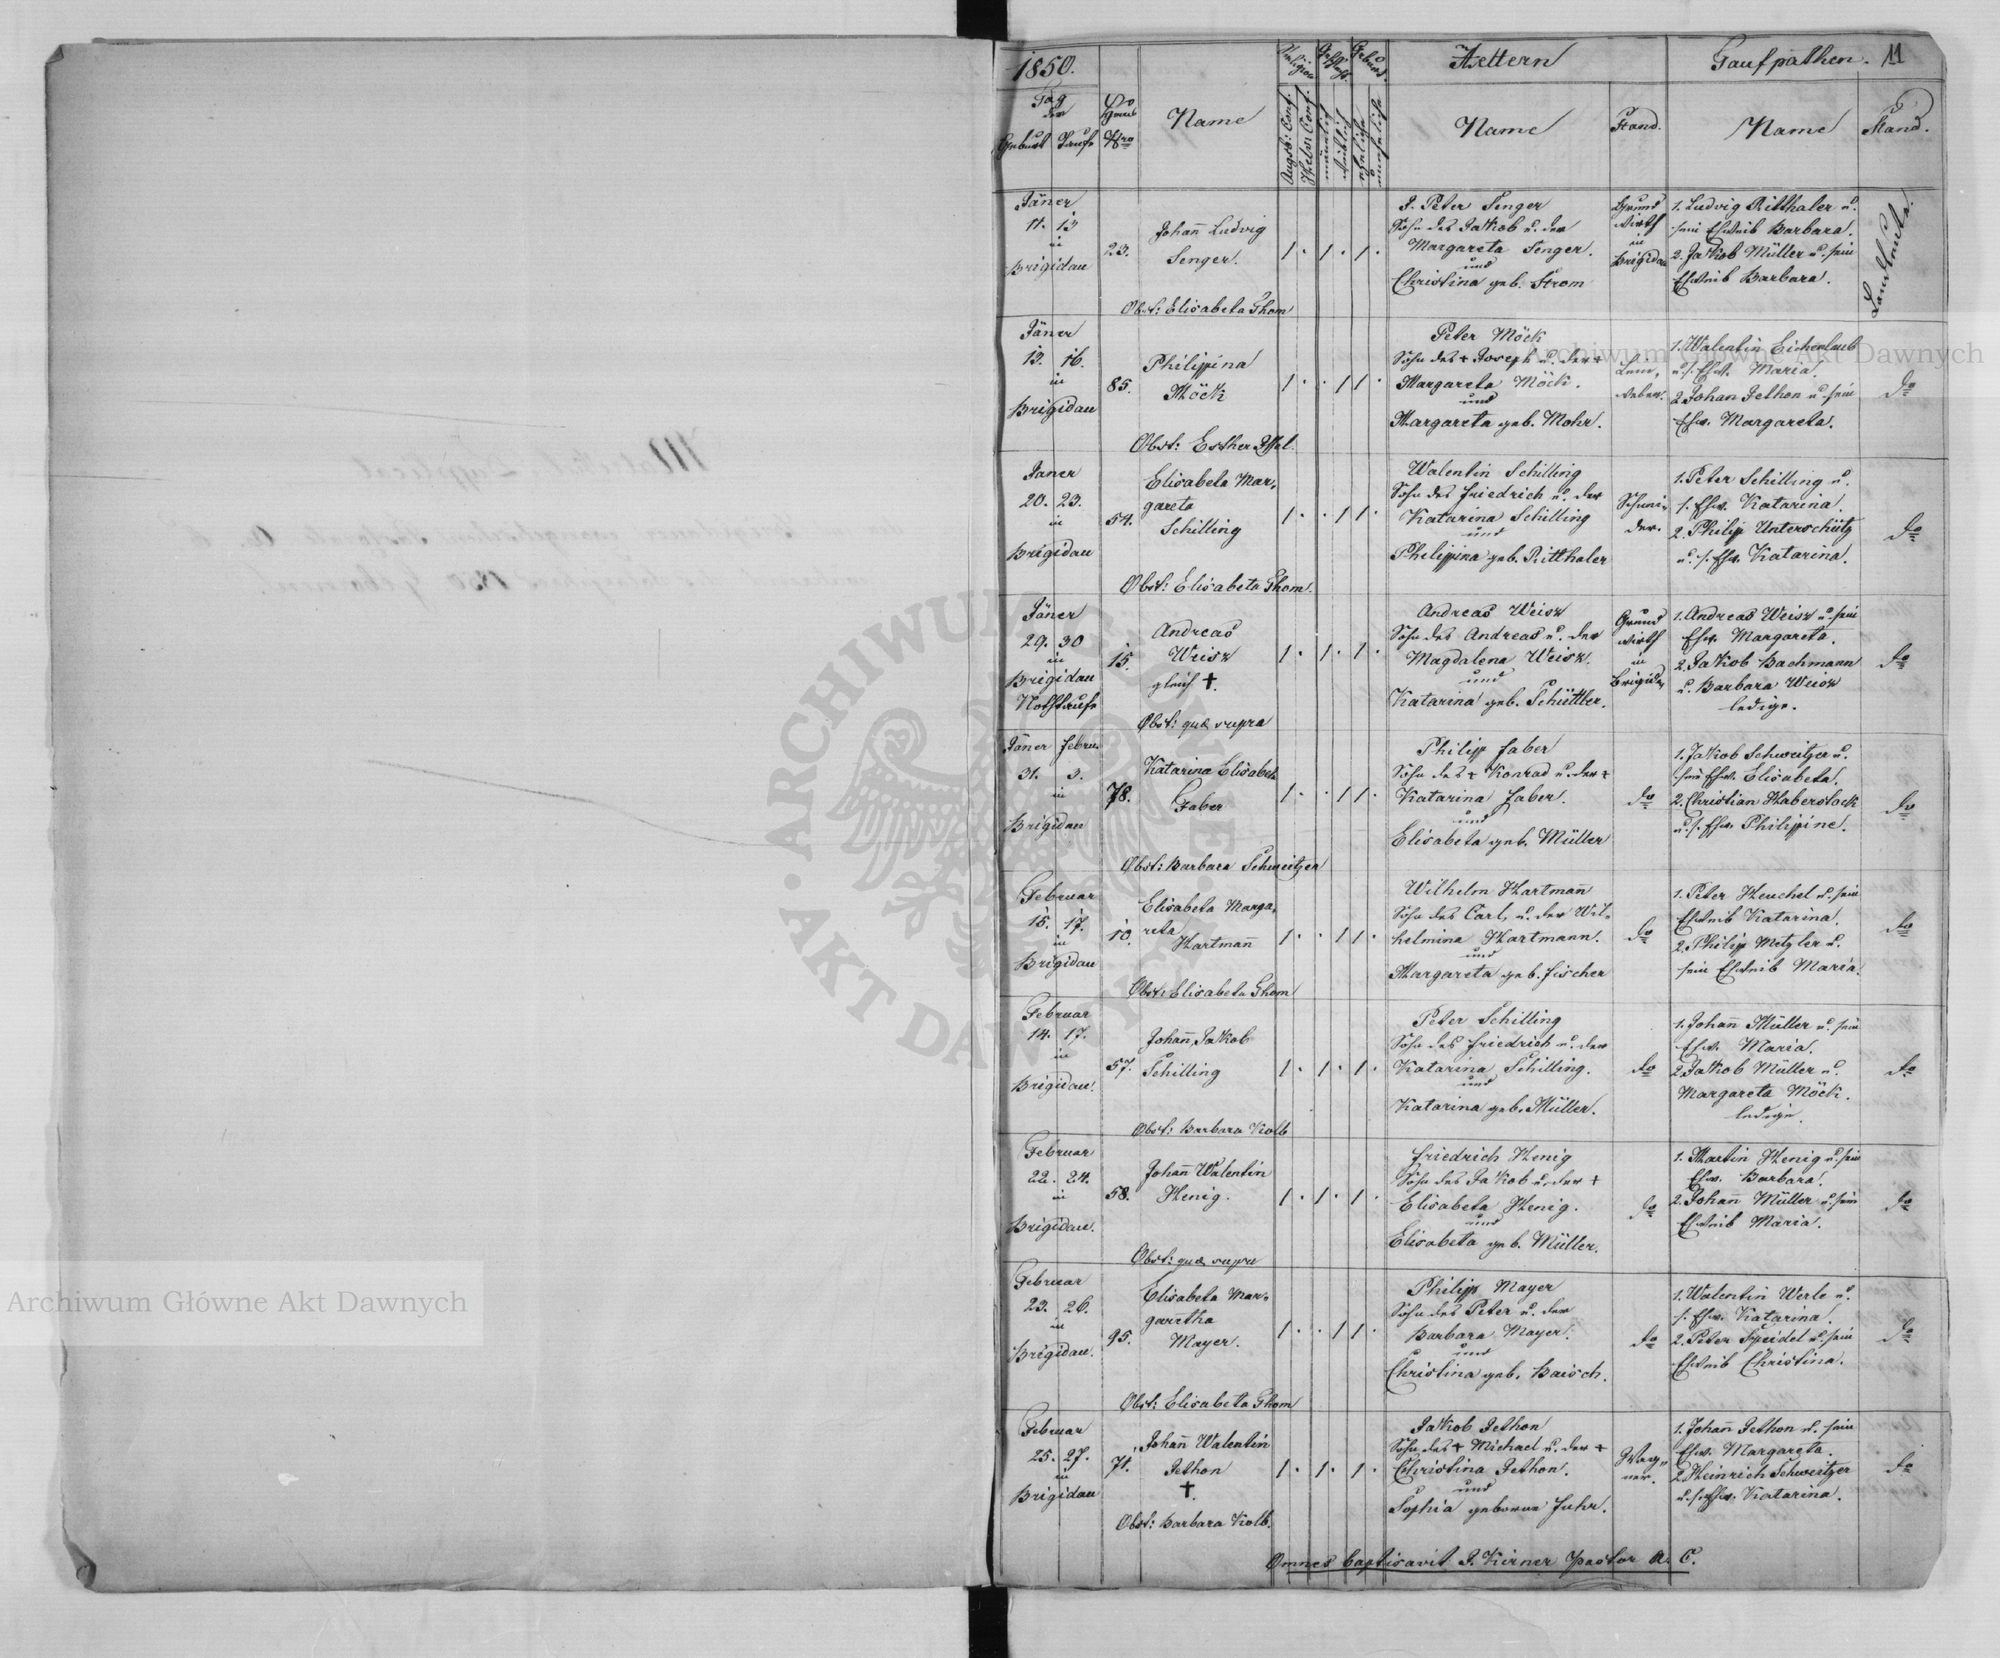 1850.
Aeltern
Taufpathen.
11
Tag
der
Geburt Taufe
Haus
Nro
Name
Religion
Augsb: Conf.
Helv: Conf.
männlich
weiblich
eheliche
uneheliche
Name
Stand.
Name
Stand.
Jäner
11. 13
in
Brigidau
23.
Johañ Ludvig
Senger.
1 . 1 . 1 .
J. Peter Senger
Sohn des Jakob u. der
Margareta Senger.
und
Christina geb. Strom
Grund
wirth
in
Brigidau
1. Ludvig Ritthaler u.
sein Eheweib Barbara.
2. Jakob Müller u. sein
Eheweib Barbara.
Landleute.
Obst: Elisabeta Thom
Jäner
13. 16.
in
Brigidau
85.
Philippina
Möck
1 . . 1 1 .
Peter Möck
Sohn des + Joseph u. der +
Margareta Möck.
und
Margareta geb. Mohr.
Lein-
weber.
1. Walentin Eichenlaub
u. s. Ehw. Maria.
2. Johan Jethon u. sein
Ehw. Margareta.
do
Obst: Esther Assel.
Janer
20. 23.
in
Brigidau
54.
Elisabeta Mar-
gareta
Schilling
1 . . 1 1 .
Walentin Schilling
Sohn des Friedrich u. der
Katarina Schilling
und
Philippina geb. Ritthaler
Schnei-
der.
1. Peter Schilling u.
s. Ehw. Katarina.
2. Philip Unterschütz
u. s. Ehw. Katarina.
do
Obst: Elisabeta Thom.
Jäner
29. 30
in
Brigidau
Nothtaufe
15.
Andreas
Weisz
gleich †.
1 . 1 . 1 .
Andreas Weisz
Sohn des Andreas u. der
Magdalena Weisz.
und
Katarina geb. Schüttler.
Grund
wirth
in
Brigidau
1. Andreas Weisz u. sein
Ehw. Margareta.
2. Jakob Bachmann
u. Barbara Weisz
ledige.
do
Obst: quæ supra
Jäner Febru.
31. 3.
in
Brigidau
78.
Katarina Elisabet
Faber
1 . . 1 1 .
Philipp Faber
Sohn des + Konrad u. der +
Katarina Faber.
und
Elisabeta geb. Müller
do
1. Jakob Schweitzer u.
sein Ehw. Elisabeta.
2. Christian Haberstock
u. s. Ehw. Philippine.
do
Obst: Barbara Schweitzer
Februar
15. 17.
in
Brigidau
10.
Elisabeta Marga-
reta
Hartmañ
1 . . 1 1 .
Wilhelm Hartman
Sohn des Carl, u. der Wil-
helmina Hartmann.
und
Margareta geb. Fischer
do
1. Peter Heuchel u. sein
Eheweib Katarina.
2. Philipp Metzler u.
sein Eheweib Maria.
do
Obst: Elisabeta Thom
Februar
14. 17.
in
Brigidau.
57.
Johañ, Jakob
Schilling
1 . 1 . 1 .
Peter Schilling
Sohn des Friedrich u. der
Katarina Schilling.
und
Katarina geb. Müller.
do
1. Johañ Müller u. sein
Ehw. Maria.
2. Jakob Müller u.
Margareta Möck.
ledige.
do
Obst: Barbara Kolb
Februar
22. 24.
in
Brigidau.
58.
Johañ Walentin
Henig.
1 . 1 . 1 .
Friedrich Henig
Sohn des Jakob u. der +
Elisabeta Henig.
und
Elisabeta geb. Müller.
do
1. Martin Henig u. sein
Ehw. Barbara.
2. Johan Müller u. sein
Eheweib Maria.
do
Obst: quæ supra
Februar
23. 26.
in
Brigidau.
95.
Elisabeta Mar-
garetha
Mayer.
1 . . 1 1 .
Philipp Mayer
Sohn des Peter u. der
Barbara Mayer.
und
Christina geb. Baisch.
do
1. Walentin Werle u.
s. Ehw. Katarina.
2. Peter Speidel u. sein
Eheweib Christina.
do
Obst: Elisabeta Thom
Februar
25. 27.
in
Brigidau
71.
Johañ Walentin
Jethon
†.
1 . 1 . 1 .
Jakob Jethon
Sohn des + Michael u. der +
Christina Jethon.
und
Sophia geborene Fuhr.
Wag-
ner.
1. Johañ Jethon u. sein
Ehw. Margareta.
2. Heinrich Schweitzer
u. s. Ehw. Katarina.
do
Obst: Barbara Kolb.
Omnes baptisavit J. Kirner Pastor A. C.
Archiwum Główne Akt Dawnych
Archiwum Główne Akt Dawnych
ARCHIWUM GŁÓWNE • AKT DAWNYCH •